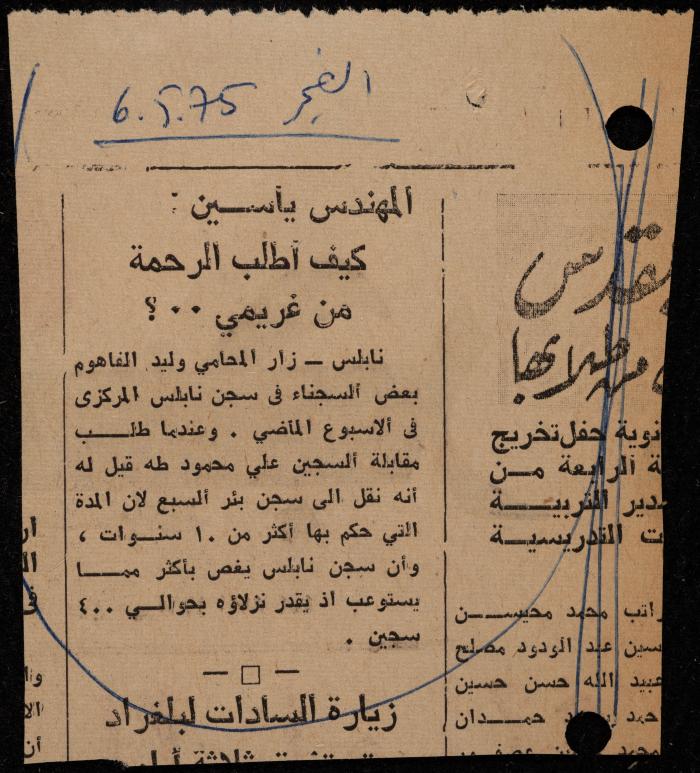 الفجر 6.5.75
المهندس ياسين :
كيف أطلب الرحمة
من غريمي ٠٠ ؟
نابلس ــ زار المحامي وليد الفاهوم
بعض السجناء فى سجن نابلس المركزى
فى الاسبوع الماضي . وعندما طلب
مقابلة السجين علي محمود طه قيل له
أنه نقل الى سجن بئر السبع لان المدة
التي حكم بها أكثر من ١٠ سنوات ،
وأن سجن نابلس يغص بأكثر مما
يستوعب اذ يقدر نزلاؤه بحوالي ٤٠٠
سجين .
زيارة السادات لبلغراد
من طلابها
نوية حفل تخريج
ة الرابعة من
دير التربية
ت التدريسية
راتب محمد محيسن
سين عبد الودود مصلح
عبيد الله حسن حسين
حمدان